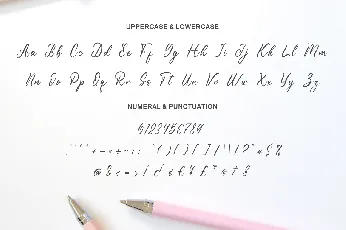 UPPERCASE & LOWERCASE
Aa Bb Cc Dd Ee Ff Gg Hh Ii Jj Kk Ll Mm
Nn Oo Pp Qq Rr Ss Tt Uu Vv Ww Xx Yy Zz
NUMERAL & PUNCTUATION
0123456789